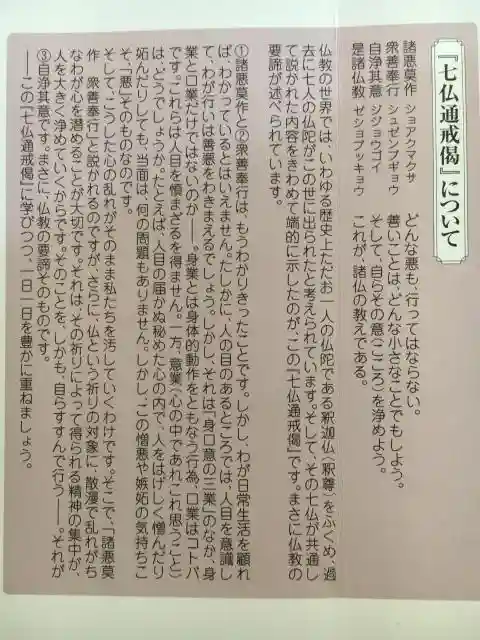 『七仏通戒偈』について
諸悪莫作　ショアクマクサ　どんな悪も、行ってはならない。
衆善奉行　シュゼンブギョウ　善いことは、どんな小さなことでもしよう。
自浄其意　ジジョウゴイ　そして、自らその意(こころ)を浄めよう。
是諸仏教　ゼショブッキョウ　これが、諸仏の教えである。
仏教の世界では、いわゆる歴史上ただお一人の仏陀である釈迦仏(釈尊)をふくめ、過
去に七人の仏陀がこの世に出られたと考えられています。そして、その七仏が共通し
て説かれた内容をきわめて端的に示したのが、この『七仏通戒偈』です。まさに仏教の
要諦が述べられています。
①諸悪莫作と②衆善奉行は、もうわかりきったことです。しかし、わが日常生活を顧れ
ば、わかっているとはいえません。たしかに、人の目のあるところでは、人目を意識し
て、わが行いは善悪をわきまえるでしょう。しかし、それは「身口意の三業」のなか、身
業と口業だけではないのか――。身業とは身体的動作をともなう行為、口業はコトバ
です。これらは人目を慎まざるを得ません。一方、意業(心の中であれこれ思うこと)
は、どうでしょうか。たとえば、人目の届かぬ秘めた心の内で、人をはげしく憎んだり
妬んだりしても、当面は、何の問題もありません。しかし、この憎悪や嫉妬の気持ちこ
そ、「悪」そのものなのです。
そして、こうした心の乱れがそのまま私たちを汚していくわけです。そこで、「諸悪莫
作　衆善奉行」と説かれるのですが、さらに、仏という祈りの対象に、散漫で乱れがち
なわが心を潜めることが大切です。それは、その祈りによって得られる精神の集中が、
人を大きく浄めていくからです。そのことを、しかも、自らすすんで行う――。それが
③自浄其意です。まさに、仏教の要諦そのものです。
――この『七仏通戒偈』に学びつつ、一日一日を豊かに重ねましょう。